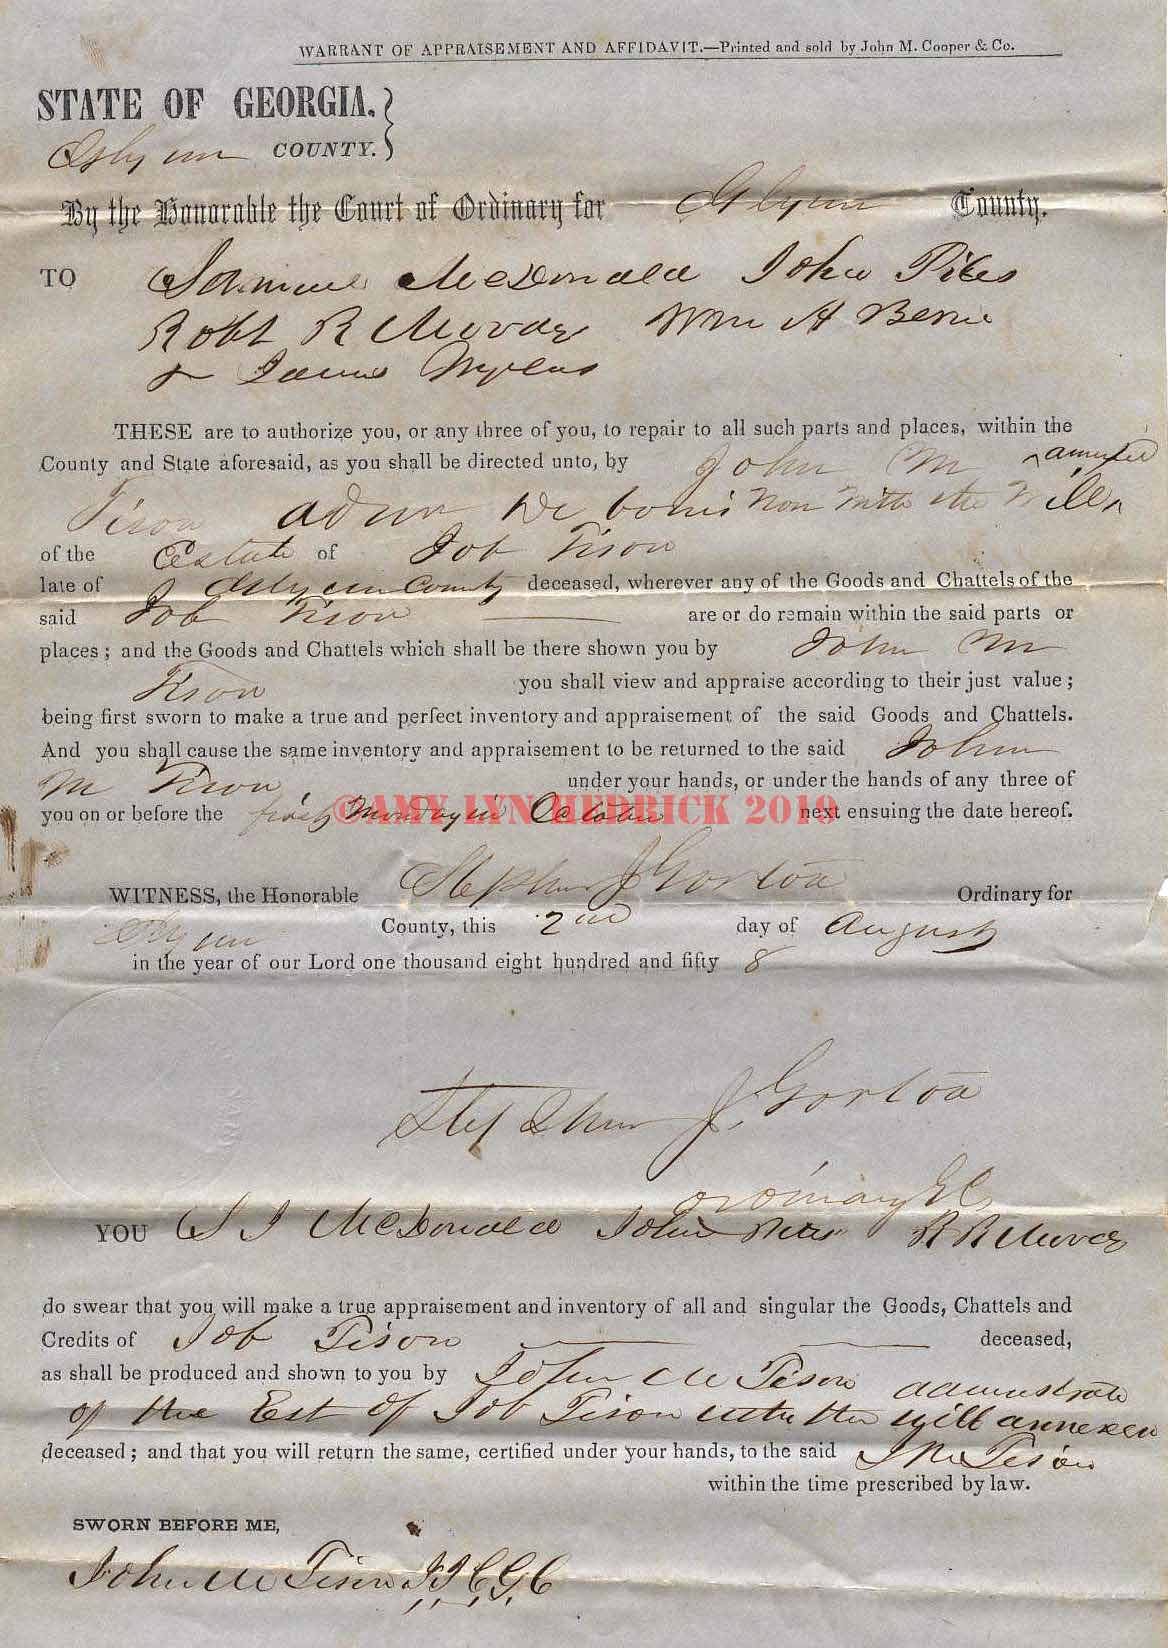 WARRANT OF APPRAISEMENT AND AFFIDAVIT.—Printed and sold by John M. Cooper & Co.
STATE OF GEORGIA, }
Glynn COUNTY. }
By the Honorable the Court of Ordinary for Glynn County.
TO Samuel McDonald John Piles
Robt R Moody Wm H Berrie
& James
THESE are to authorize you, or any three of you, to repair to all such parts and places, within the
County and State aforesaid, as you shall be directed unto, by John M ^ annexed
Tison admr de bonis non with the Will ^
of the Estate of Job Tison
late of Glynn County deceased, wherever any of the Goods and Chattels of the
said Job Tison are or do remain within the said parts or
places; and the Goods and Chattels which shall be there shown you by John M
Tison you shall view and appraise according to their just value;
being first sworn to make a true and perfect inventory and appraisement of the said Goods and Chattels.
And you shall cause the same inventory and appraisement to be returned to the said John
M Tison under your hands, or under the hands of any three of
you on or before the first Monday in October next ensuing the date hereof.
©AMY LYN HEDRICK 2010
WITNESS, the Honorable Stephen J Gorton Ordinary for
Glynn County, this 2nd day of August
in the year of our Lord one thousand eight hundred and fifty 8
Stephen J. Gorton
Ordinary G C,
YOU S J McDonald John Piles R R Moody
do swear that you will make a true appraisement and inventory of all and singular the Goods, Chattels and
Credits of Job Tison deceased,
as shall be produced and shown to you by John M Tison administrator
of the Est of Job Tison with the will annexed
deceased; and that you will return the same, certified under your hands, to the said J M Tison
within the time prescribed by law.
SWORN BEFORE ME,
John M Tison J.I.C.G.C